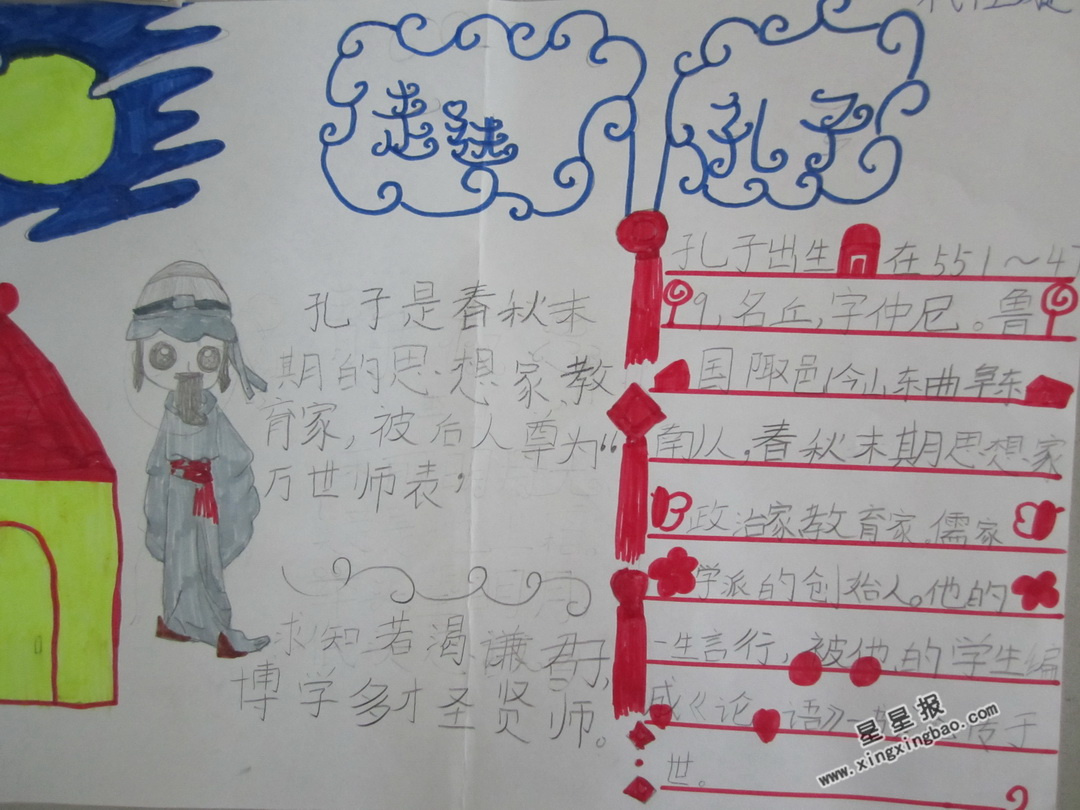 走进 孔子
孔子是春秋末
期的思想家教
育家,被后人尊为“
万世师表,
求知若渴,谦君子,
博学多才圣贤师。
孔子出生在551～47
9,名丘,字仲尼。鲁
国陬邑,今山东曲阜东
南人,春秋末期思想家
政治家教育家,儒家
学派的创始人。他的
一生言行,被他的学生编
成《论语》一 传于
世。
星星报
www.xingxingbao.com